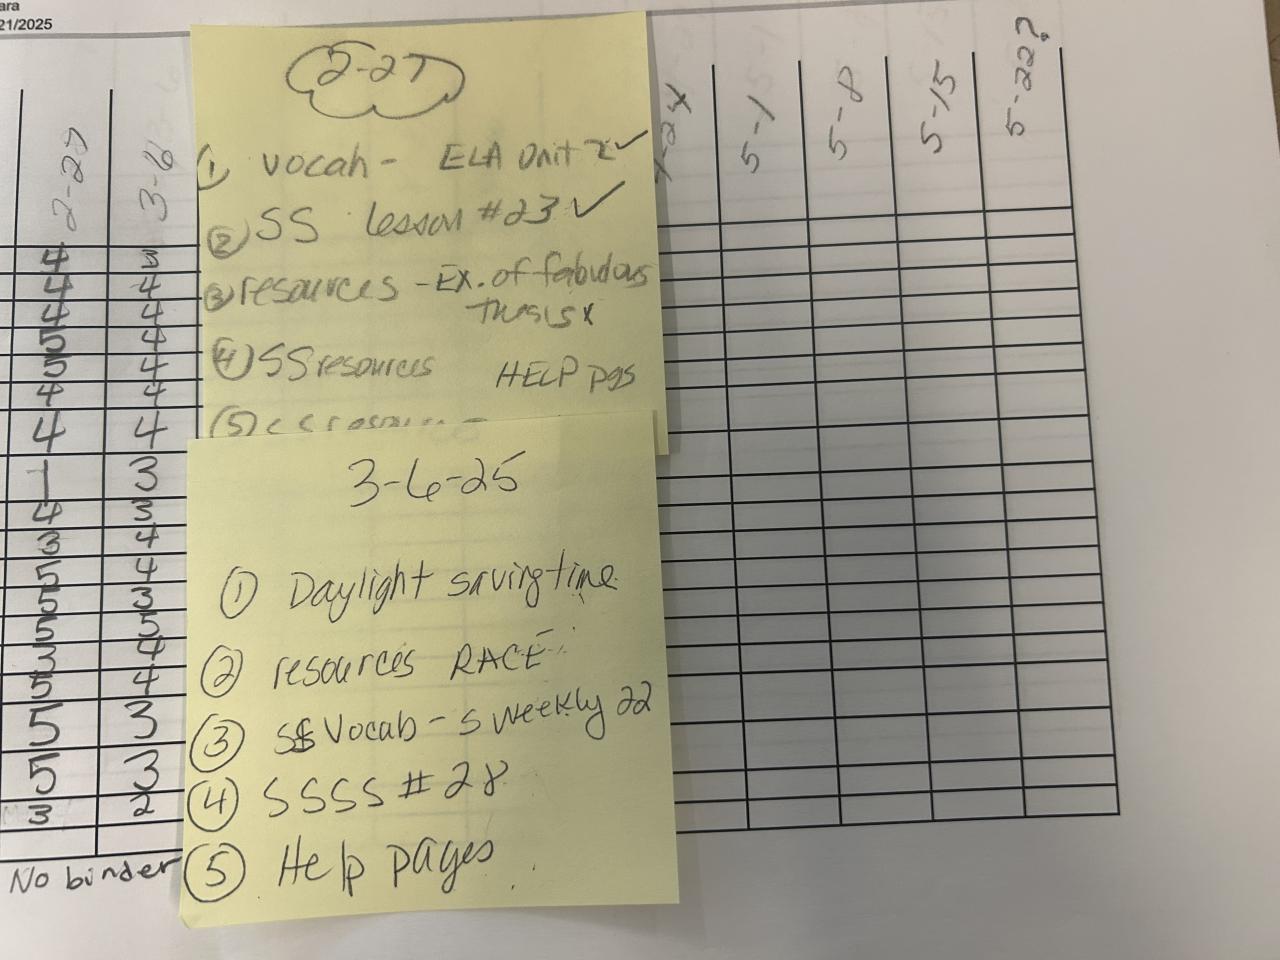 ara
21/2025
2-27
3-6
5-1
5-8
5-15
5-22?
2-27
① vocab - ELA Unit 2 ✓
② SS lesson #23 ✓
③ resources - EX. of fabulous
thesis x
④ SS resources HELP pgs
⑤
3-6-25
① Daylight saving time
② resources RACE
③ SS Vocab - S weekly 22
④ SSSS #28
⑤ Help pages
4 3
4 4
4 4
5 4
5 4
4 4
4 4
1 3
4 3
3 4
5 4
5 3
5 5
3 4
5 4
5 3
5 3
3 2
No binder